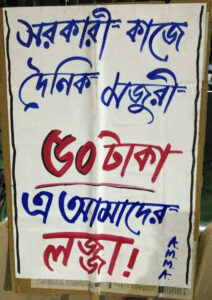 সরকারী কাজে
দৈনিক মজুরী
৫০ টাকা
এ আমাদের
লজ্জা!
A.M.M.A.